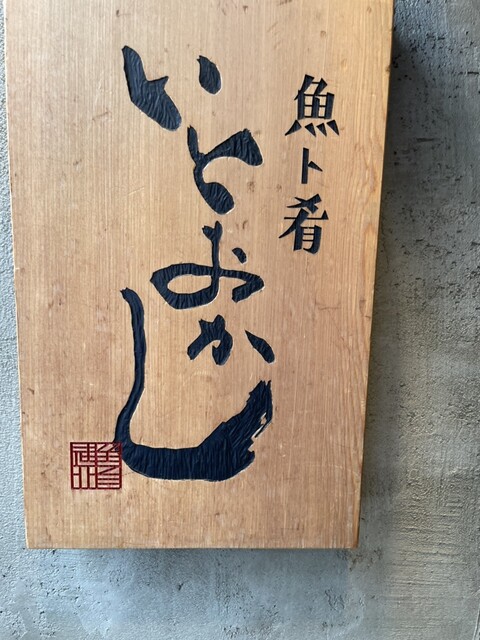 魚ト肴
いとおかし